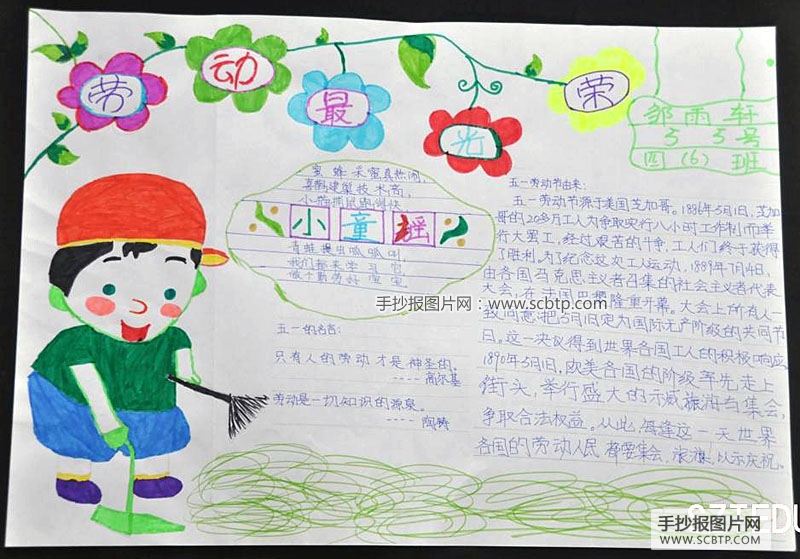 劳动最光荣
邹雨轩
55号
四(6)班
蜜蜂采蜜真热闹,
喜鹊建巢技术高,
小童谣
青蛙捉虫呱呱叫
我们都来学习它
做个勤劳好宝宝
手抄报图片网:www.scbtp.com
五一的名言:
只有人的劳动才是神圣的。
----高尔基
劳动是一切知识的源泉。
----陶铸
五一劳动节由来:
五一劳动节源于美国芝加哥。1886年5月1日,芝加
哥的20多万工人为争取实行八小时工作制而举
行大罢工,经过艰苦的斗争,工人们终于获得
了胜利。为了纪念这次工人运动,1889年7月4日,
由各国马克思主义者召集的社会主义者代表
大会,在法国巴黎隆重开幕。大会上所有人一
致同意:把5月1日定为国际无产阶级的共同节
日。这一决议得到世界各国工人的积极响应。
1890年5月1日,欧美各国的阶级率先走上
街头,举行盛大的示威旅游与集会,
争取合法权益。从此,每逢这一天世界
各国的劳动人民都要集会、游行,以示庆祝。
手抄报图片网
WWW.SCBTP.COM